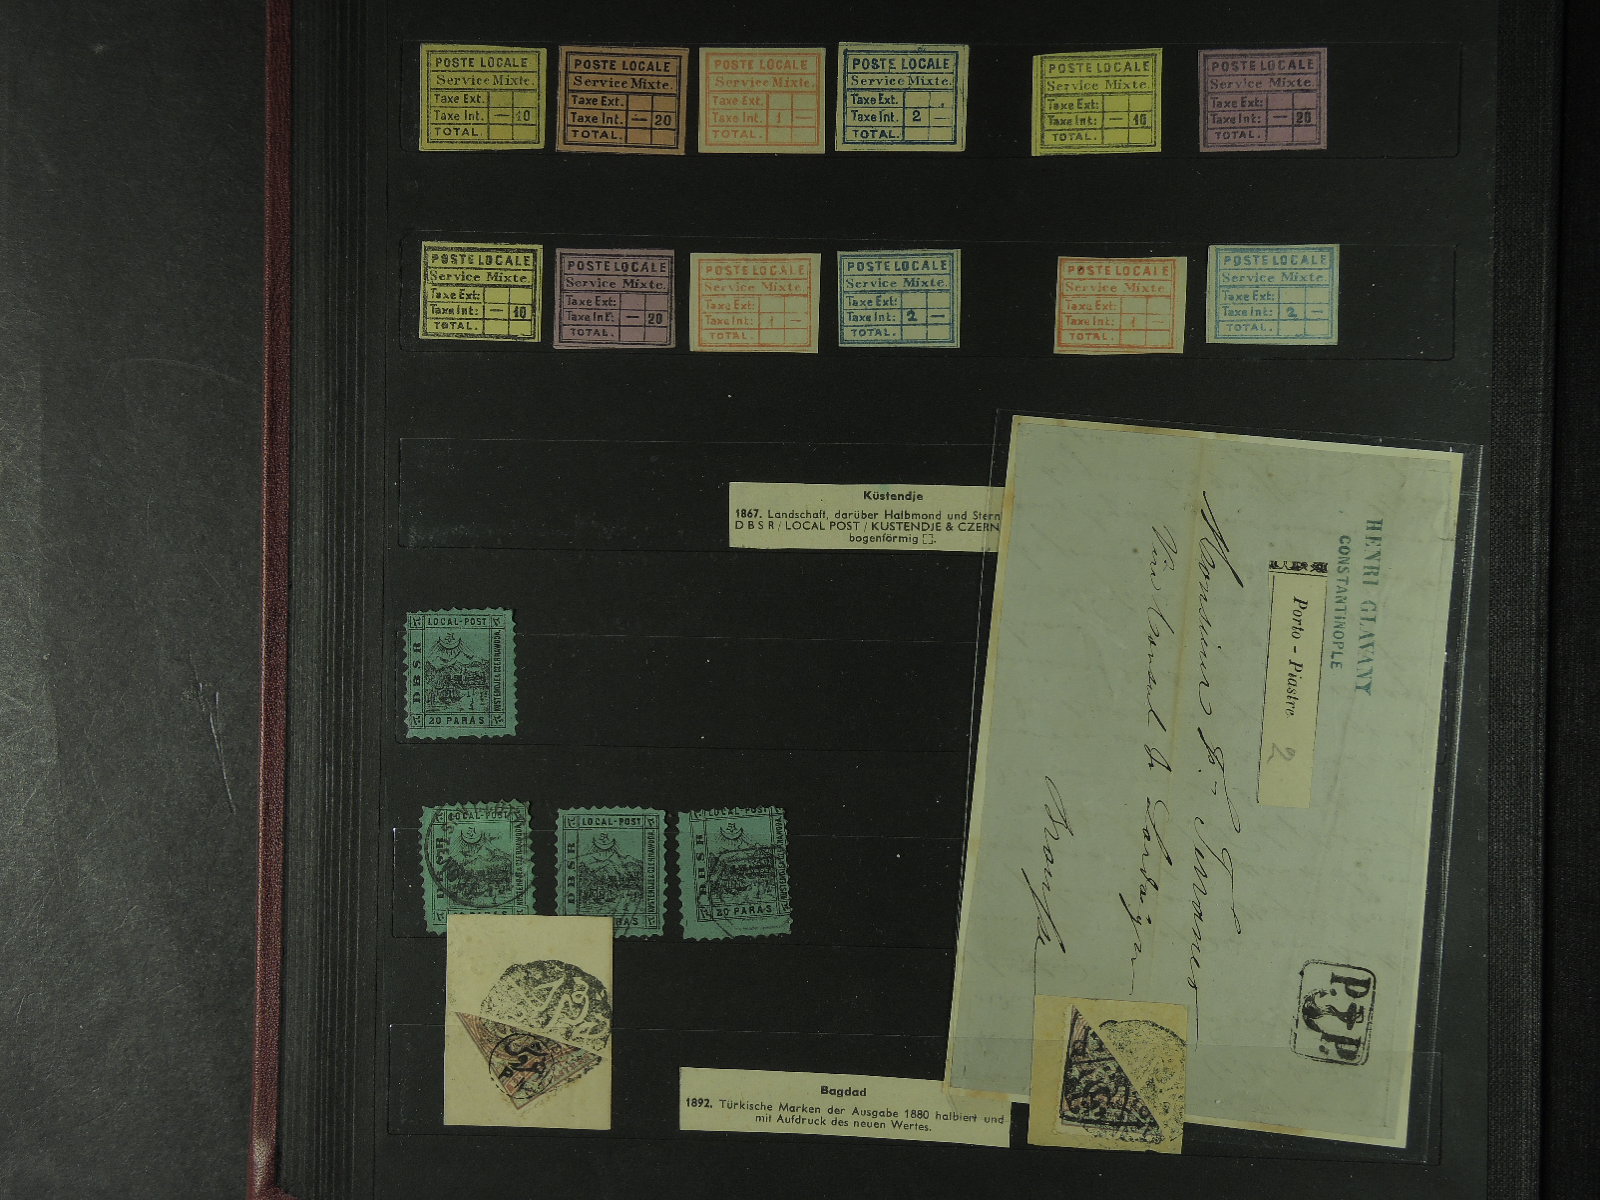 POSTE LOCALE
Service Mixte.
Taxe Ext.
Taxe Int. — 10
TOTAL.
POSTE LOCALE
Service Mixte.
Taxe Ext.
Taxe Int. — 20
TOTAL.
POSTE LOCALE
Service Mixte.
Taxe Ext.
Taxe Int. 1 —
TOTAL.
POSTE LOCALE
Service Mixte.
Taxe Ext.
Taxe Int. 2 —
TOTAL.
POSTE LOCALE
Service Mixte.
Taxe Ext:
Taxe Int: — 10
TOTAL.
POSTE LOCALE
Service Mixte.
Taxe Ext:
Taxe Int: — 20
TOTAL.
POSTE LOCALE
Service Mixte.
Taxe Ext:
Taxe Int: — 10
TOTAL.
POSTE LOCALE
Service Mixte.
Taxe Ext:
Taxe Int: — 20
TOTAL.
POSTE LOCALE
Service Mixte.
Taxe Ext:
Taxe Int: 1 —
TOTAL.
POSTE LOCALE
Service Mixte.
Taxe Ext:
Taxe Int: 2 —
TOTAL.
POSTE LOCALE
Service Mixte.
Taxe Ext:
Taxe Int: 1
TOTAL.
POSTE LOCALE
Service Mixte.
Taxe Ext:
Taxe Int: 2 —
TOTAL.
Küstendje
1867. Landschaft, darüber Halbmond und Stern
D B S R / LOCAL POST / KUSTENDJE & CZERN
bogenförmig [].
HENRI GLAVANY
CONSTANTINOPLE
Porto - Piastre
2
Monsieur
Vice Consul de
P.P.
LOCAL-POST
D B S R
KUSTENDJE & CZERNAWODA
20 PARAS
LOCAL-POST
LOCAL-POST
D B S R
KUSTENDJE & CZERNAWODA
LOCAL-POST
D B S R
20 PARAS
Bagdad
1892. Türkische Marken der Ausgabe 1880 halbiert und
mit Aufdruck des neuen Wertes.